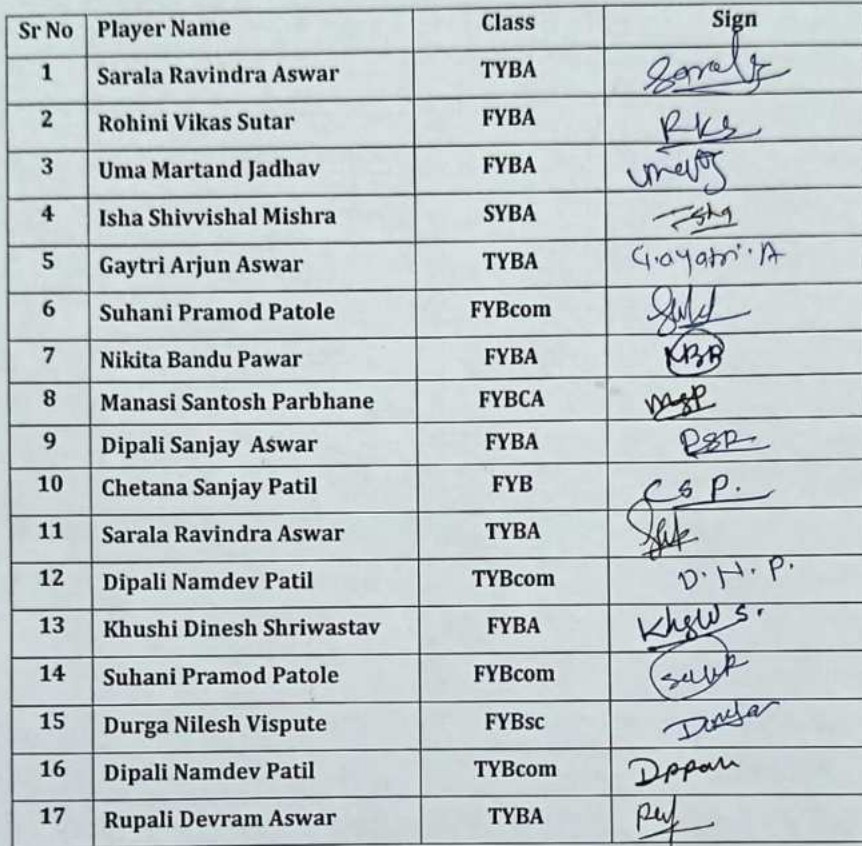 Sr No Player Name Class Sign
1 Sarala Ravindra Aswar TYBA
2 Rohini Vikas Sutar FYBA RKS
3 Uma Martand Jadhav FYBA
4 Isha Shivvishal Mishra SYBA Isha
5 Gaytri Arjun Aswar TYBA Gayatri.A
6 Suhani Pramod Patole FYBcom
7 Nikita Bandu Pawar FYBA
8 Manasi Santosh Parbhane FYBCA MSP
9 Dipali Sanjay Aswar FYBA
10 Chetana Sanjay Patil FYB C S P.
11 Sarala Ravindra Aswar TYBA
12 Dipali Namdev Patil TYBcom D.N.P.
13 Khushi Dinesh Shriwastav FYBA
14 Suhani Pramod Patole FYBcom
15 Durga Nilesh Vispute FYBsc
16 Dipali Namdev Patil TYBcom
17 Rupali Devram Aswar TYBA